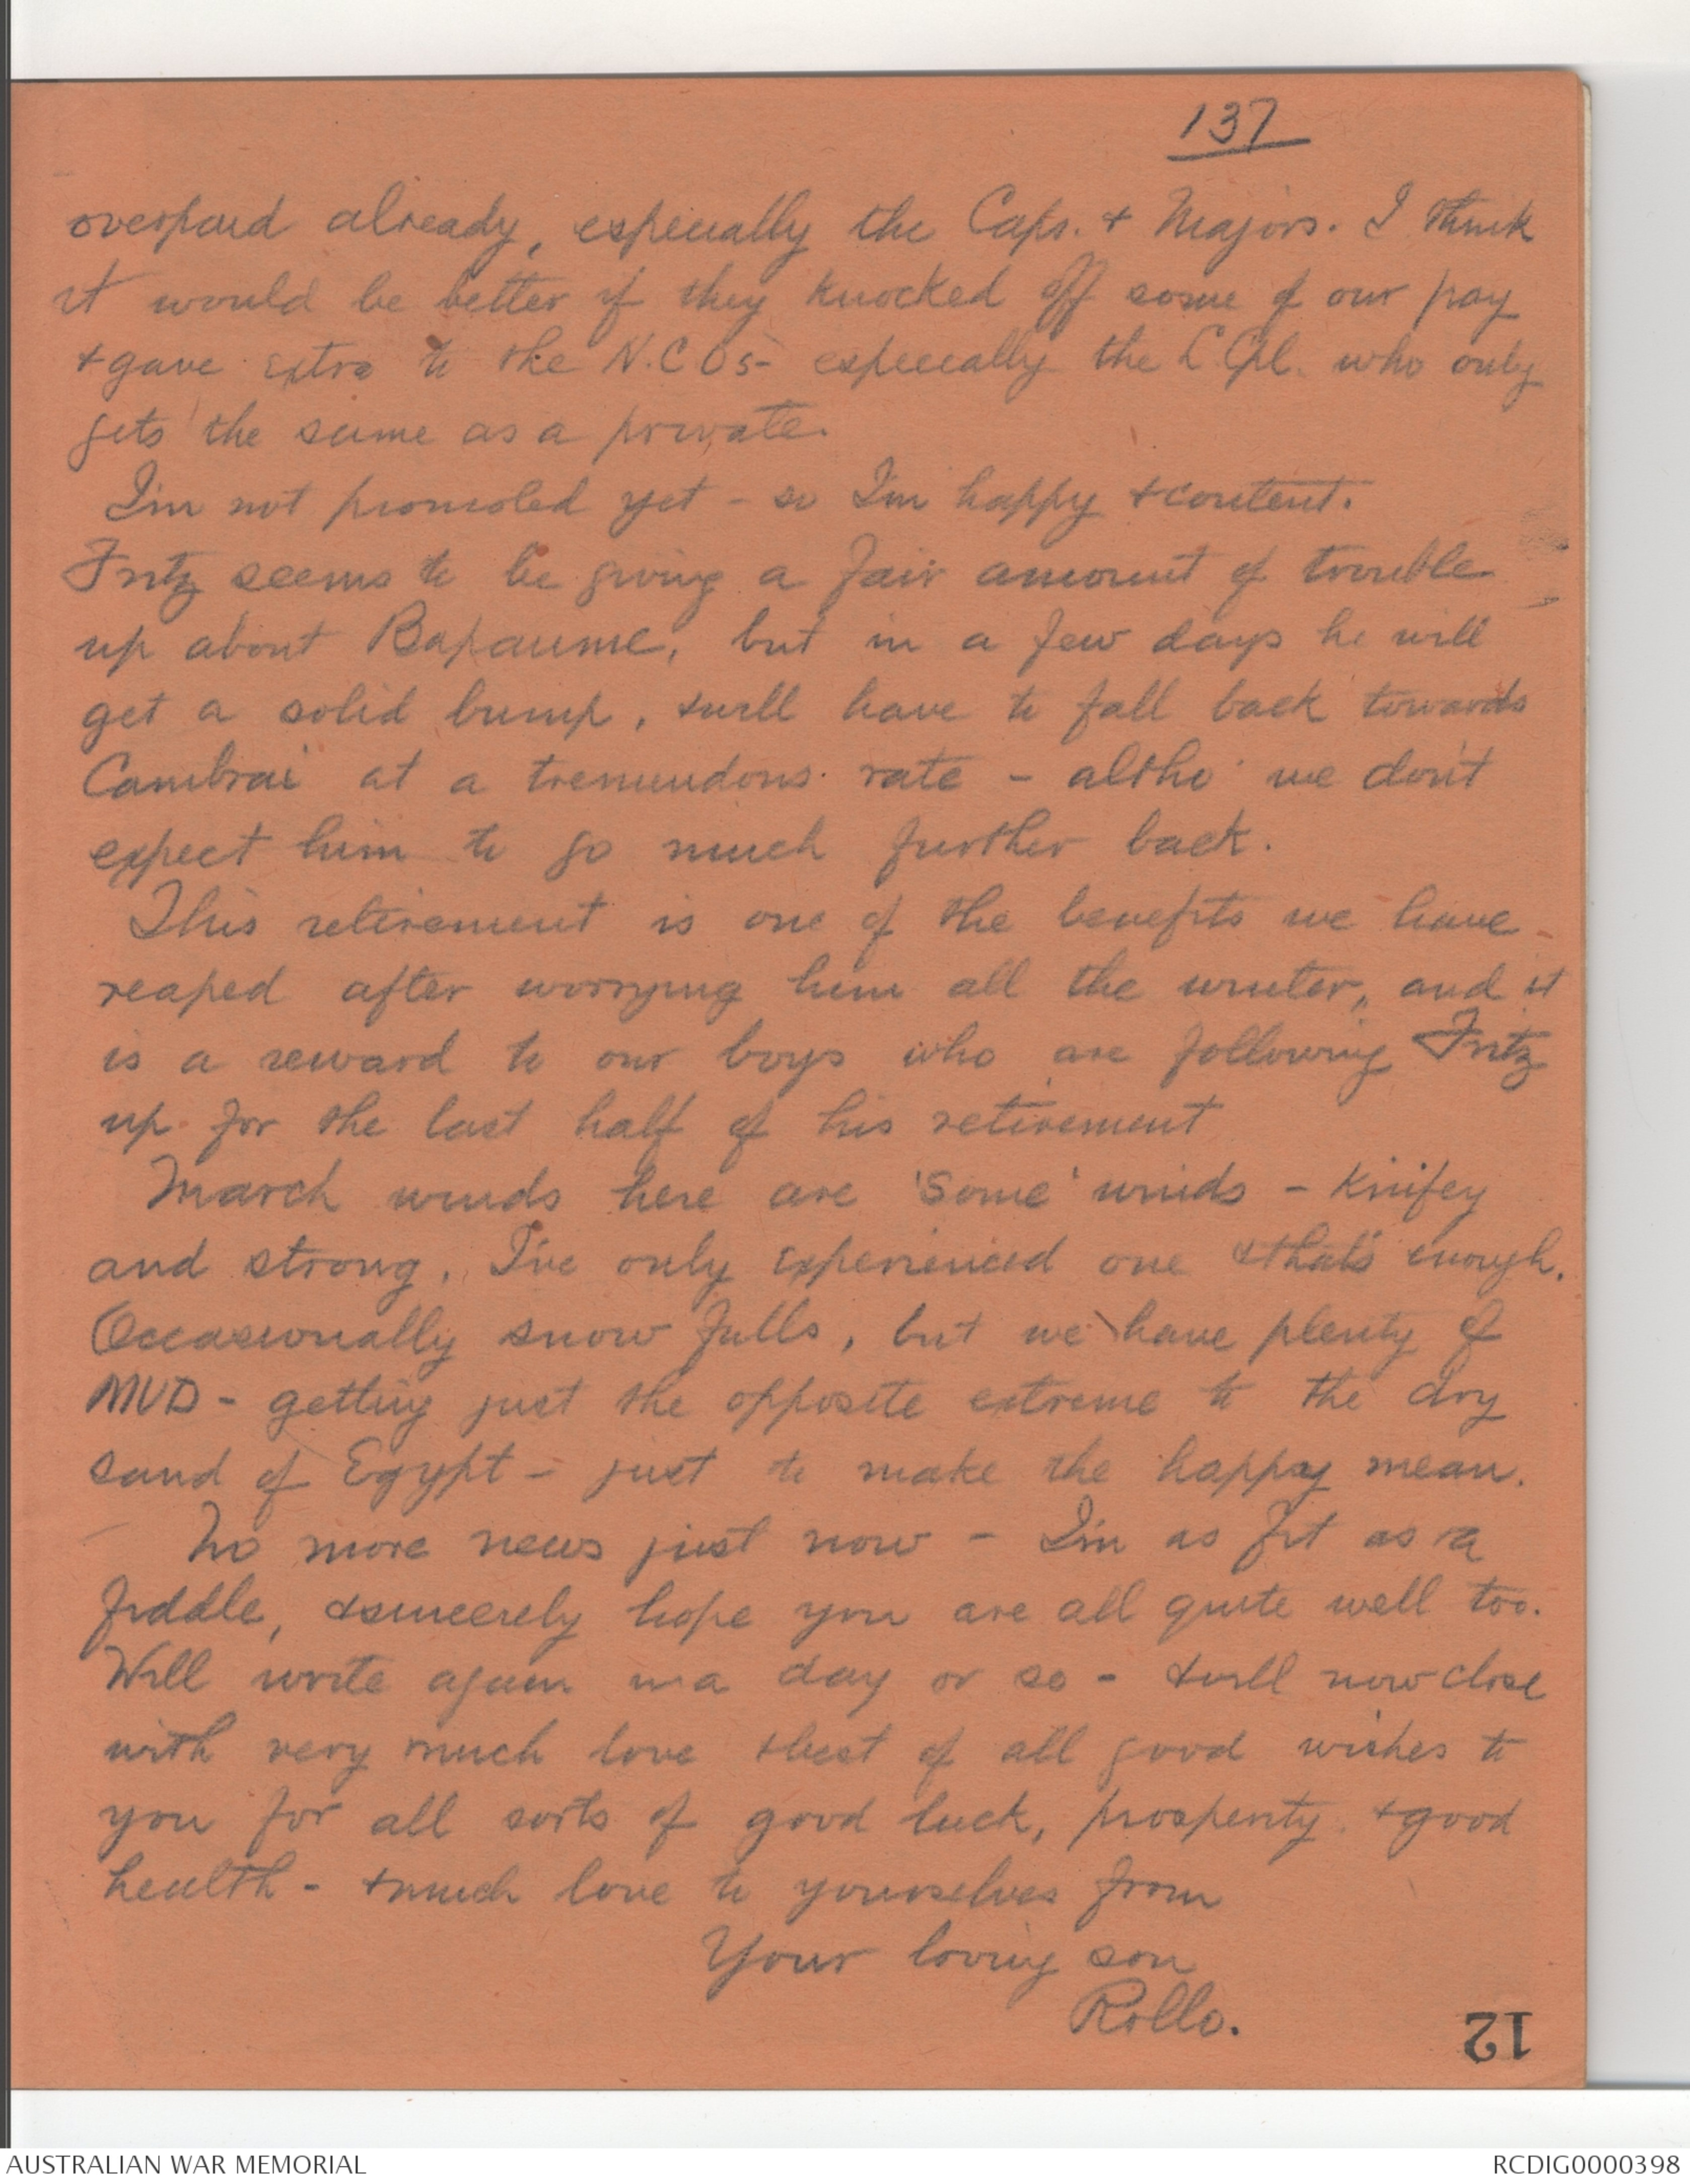 137
overpaid already, especially the Capts. & Majors. I think
it would be better if they knocked off some of our pay
& gave extra to the N.C.Os - especially the L.Cpl. who only
gets the same as a private.
I'm not promoted yet - so I'm happy & content.
Fritz seems to be giving a fair amount of trouble
up about Bapaume, but in a few days he will
get a solid bump, & will have to fall back towards
Cambrai at a tremendous rate - altho' we don't
expect him to go much further back.
This retirement is one of the benefits we have
reaped after worrying him all the winter, and it
is a reward to our boys who are following Fritz
up for the last half of his retirement
March winds here are 'some' winds - knifey
and strong. I've only experienced one & that's enough.
Occasionally snow falls, but we have plenty of
MUD - getting just the opposite extreme to the dry
sand of Egypt - just to make the happy mean.
No more news just now - I'm as fit as a
fiddle, & sincerely hope you are all quite well too.
Will write again in a day or so - & will now close
with very much love & best of all good wishes to
you for all sorts of good luck, prosperity & good
health - & much love to yourselves from
Your loving son
Rollo.
12
AUSTRALIAN WAR MEMORIAL
RCDIG0000398